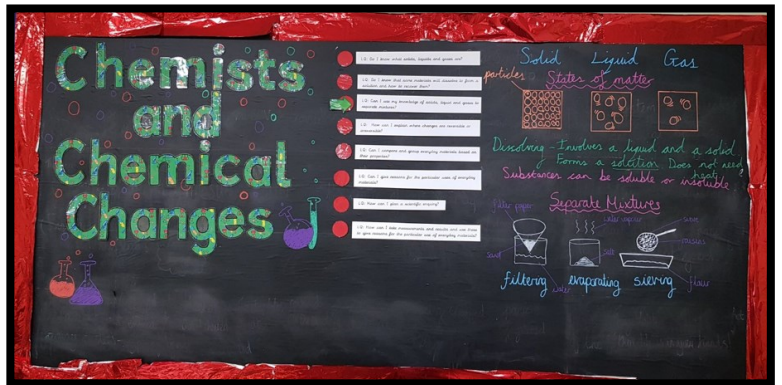 Chemists
and
Chemical
Changes
I.Q. Do I know what solids, liquids and gases are?
I.Q. Do I know that some materials will dissolve in form a
solution and how to recover them?
I.Q. Can I use my knowledge of solids, liquid and gases to
separate mixtures?
I.Q. How can I explain where changes are reversible or
irreversible?
I.Q. Can I compare and group everyday materials based on
their properties?
I.Q. Can I give reasons for the particular uses of everyday
materials?
I.Q. How can I plan a scientific enquiry?
I.Q. How can I take measurements and results and use these
to give reasons for the particular use of everyday materials?
Solid Liquid Gas
particles
States of matter
Dissolving - Involves a liquid and a solid
Forms a solution Does not need
heat
Substances can be soluble or insoluble
Separate Mixtures
filter paper
water vapour
sieve
sand
salt
raisins
filtering evaporating sieving
water
flour